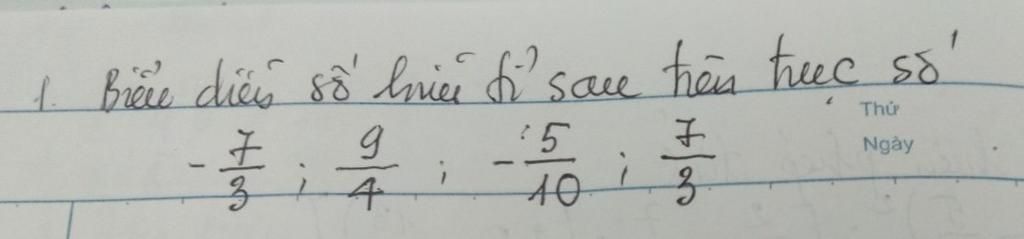 1. Biểu diễn số hữu tỉ sau trên trục số
Thứ
Ngày
-7/3 ; 9/4 ; -5/10 ; 7/3